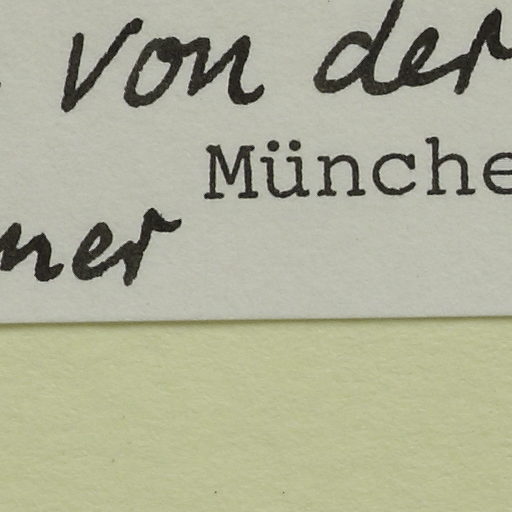 von der
Münche
ner